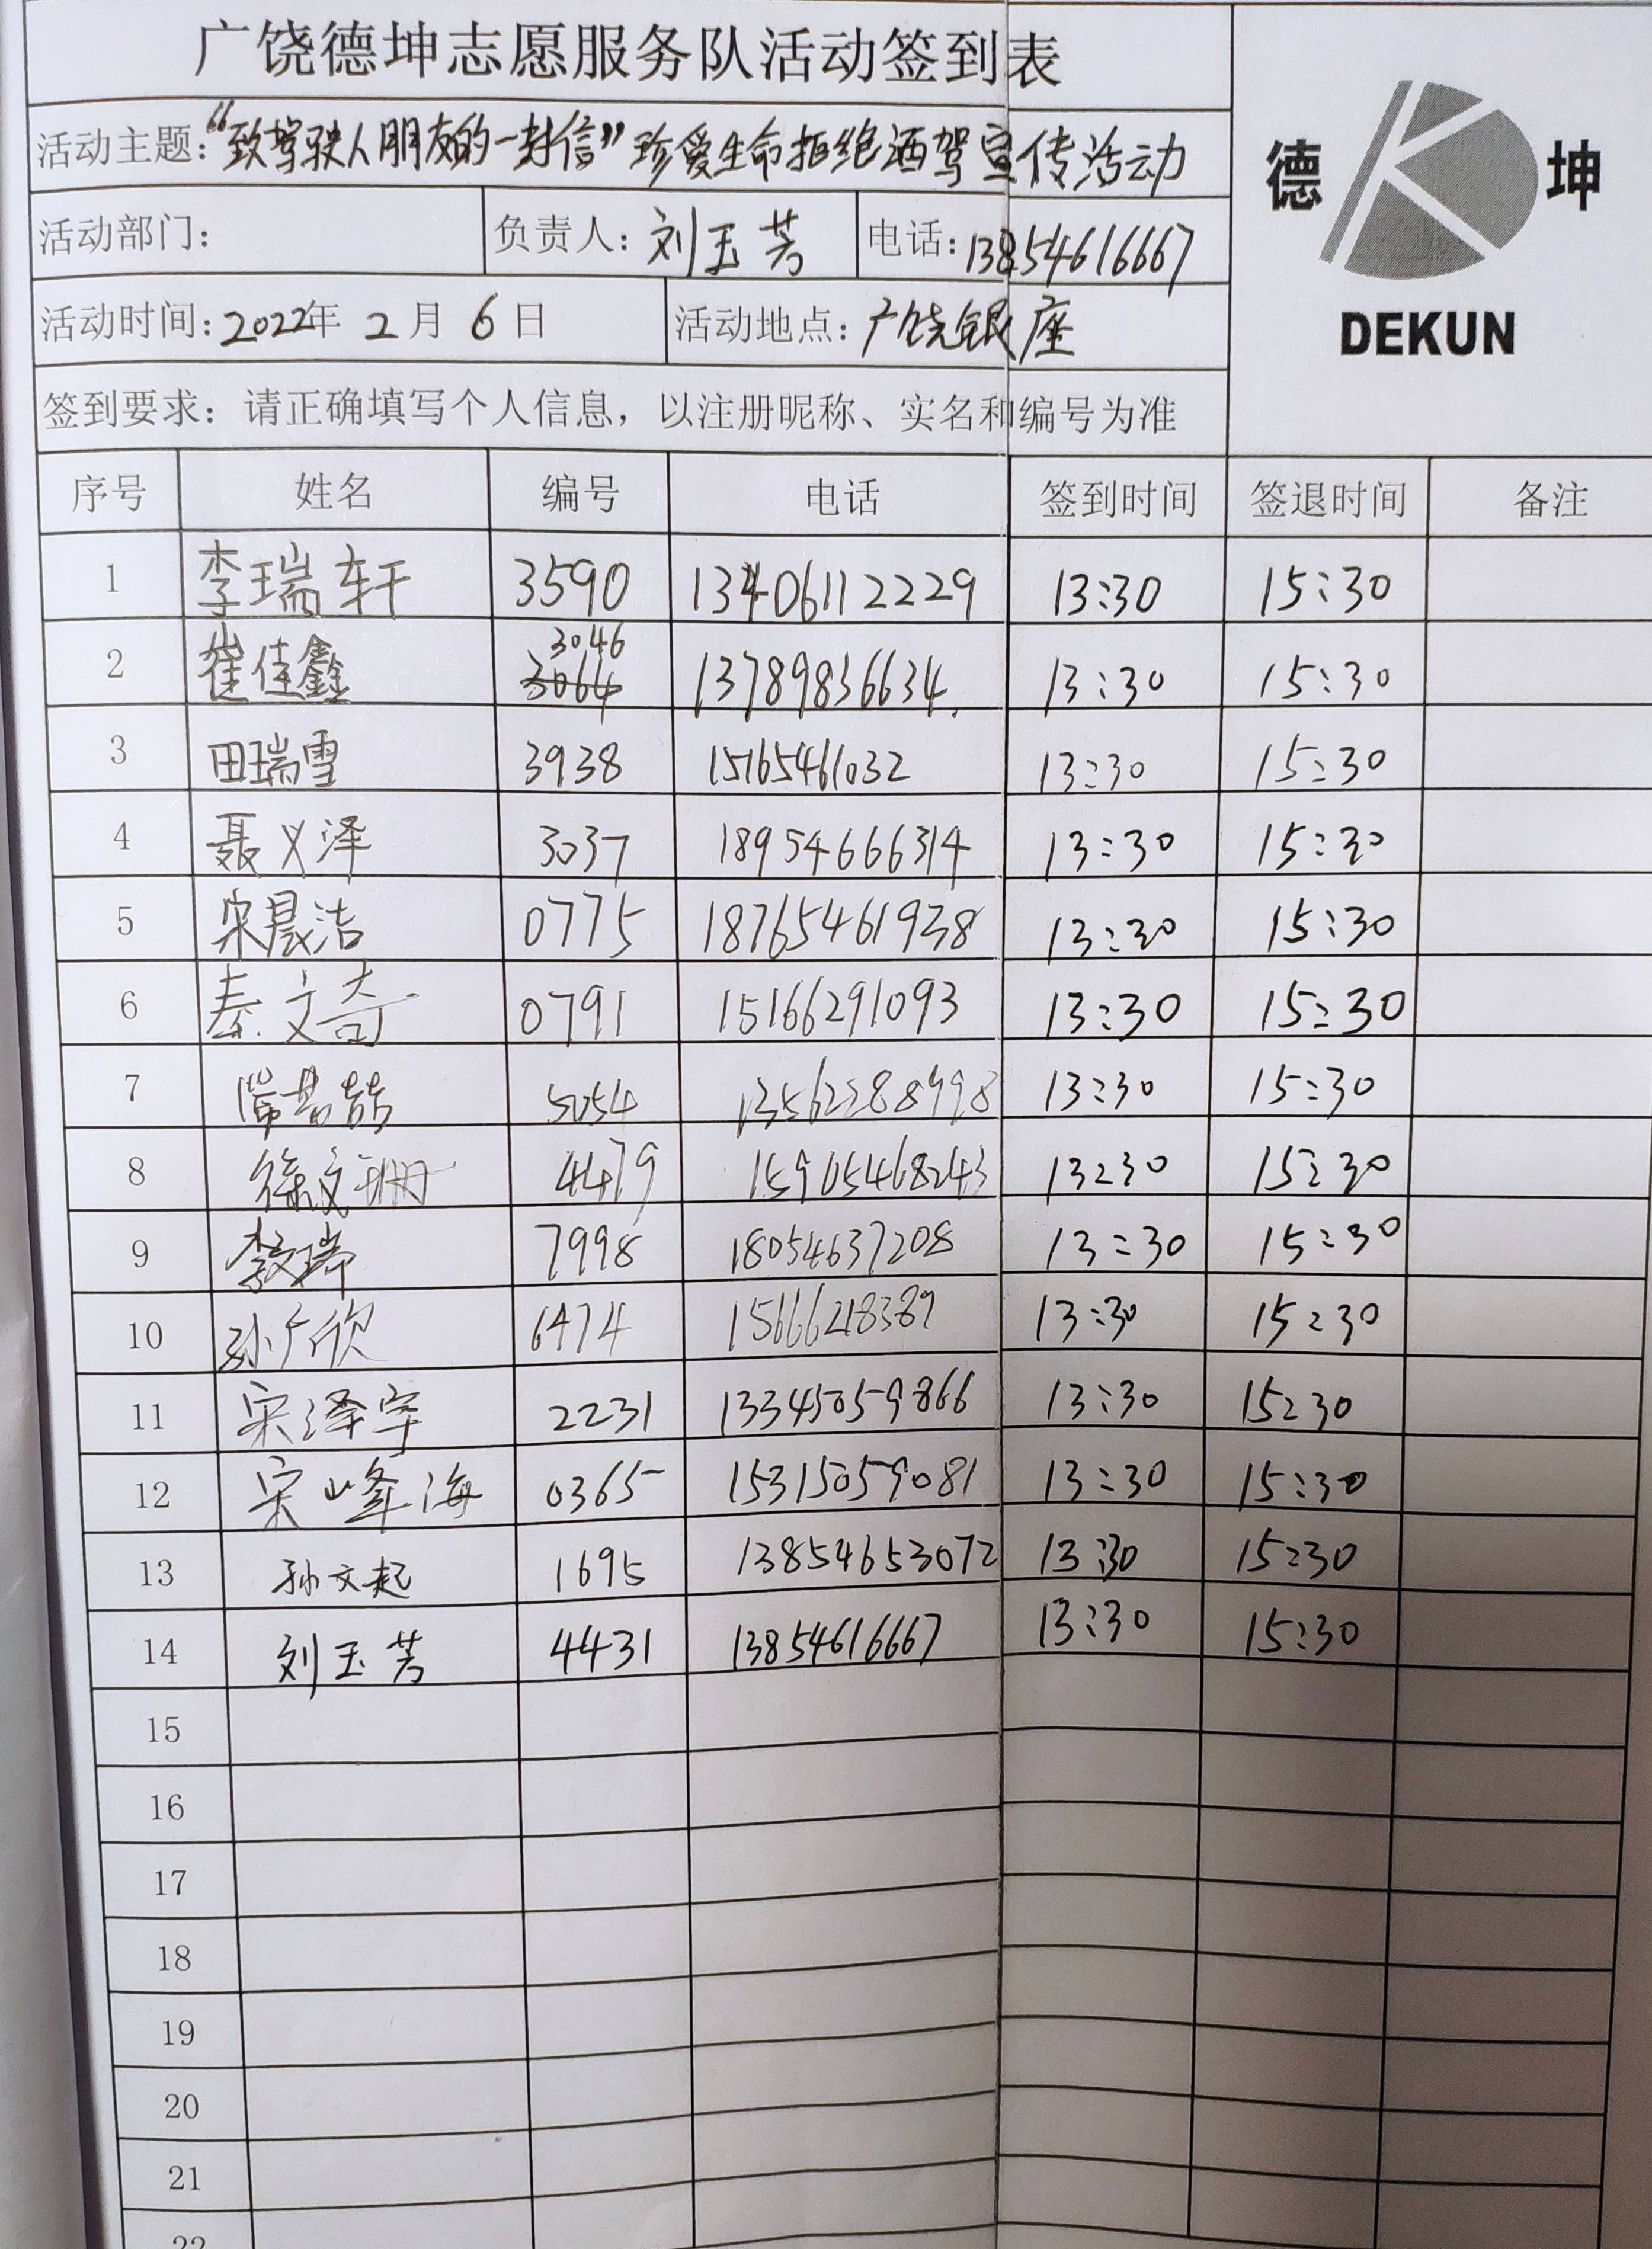 广饶德坤志愿服务队活动签到表
活动主题：“致驾驶人朋友的一封信”珍爱生命拒绝酒驾宣传活动
德 坤
DEKUN
活动部门： 负责人：刘玉芳 电话：13854616667
活动时间：2022年2月6日 活动地点：广饶银座
签到要求：请正确填写个人信息，以注册昵称、实名和编号为准
序号 姓名 编号 电话 签到时间 签退时间 备注
1 李瑞轩 3590 13406112229 13:30 15:30
2 崔佳鑫 3046 3064 13789836634 13:30 15:30
3 田瑞雪 3938 15165461032 13:30 15:30
4 聂义泽 3037 18954666314 13:30 15:30
5 宋晟洁 0775 18765461938 13:30 15:30
6 秦文奇 0791 15166291093 13:30 15:30
7 5054 13:30 15:30
8 徐文珊 4479 15905468243 13:30 15:30
9 李文瑞 7998 18054637208 13:30 15:30
10 孙广欣 6474 13:30 15:30
11 宋泽宇 2231 13345059866 13:30 15:30
12 宋峰海 0365 15315059081 13:30 15:30
13 孙文起 1695 13854653072 13:30 15:30
14 刘玉芳 4431 13854616667 13:30 15:30
15
16
17
18
19
20
21
22